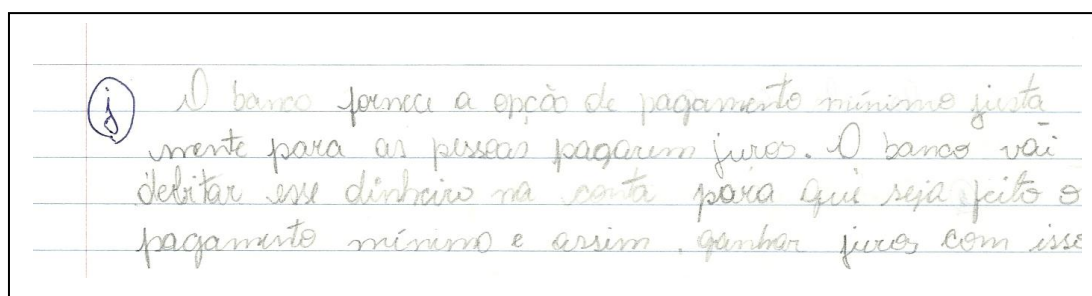 j O banco fornece a opção de pagamento mínimo justa
mente para as pessoas pagarem juros. O banco vai
debitar esse dinheiro na conta para que seja feito o
pagamento mínimo e assim ganhar juros com isso